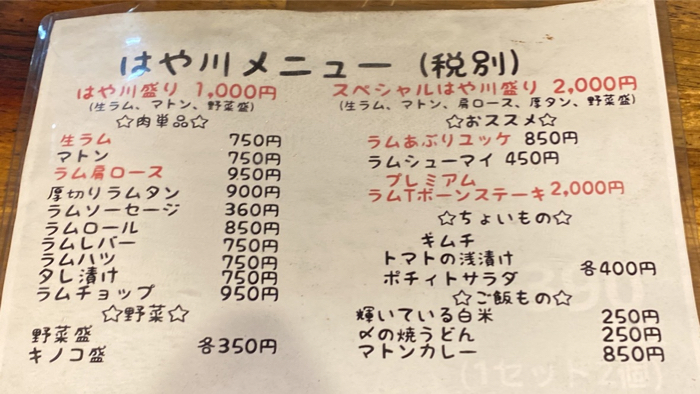 はや川メニュー (税別)
はや川盛り 1,000円
(生ラム、マトン、野菜盛)
☆肉単品☆
生ラム 750円
マトン 750円
ラム肩ロース 950円
厚切りラムタン 900円
ラムソーセージ 360円
ラムロール 850円
ラムレバー 750円
ラムハツ 750円
タレ漬け 750円
ラムチョップ 950円
☆野菜☆
野菜盛
キノコ盛
各350円
スペシャルはや川盛り 2,000円
(生ラム、マトン、肩ロース、厚タン、野菜盛)
☆おススメ☆
ラムあぶりユッケ 850円
ラムシューマイ 450円
プレミアム
ラムTボーンステーキ 2,000円
☆ちょいもの☆
キムチ
トマトの浅漬け
ポチィトサラダ
各400円
☆ご飯もの☆
輝いている白米 250円
〆の焼うどん 250円
マトンカレー 850円
(1セット2個)